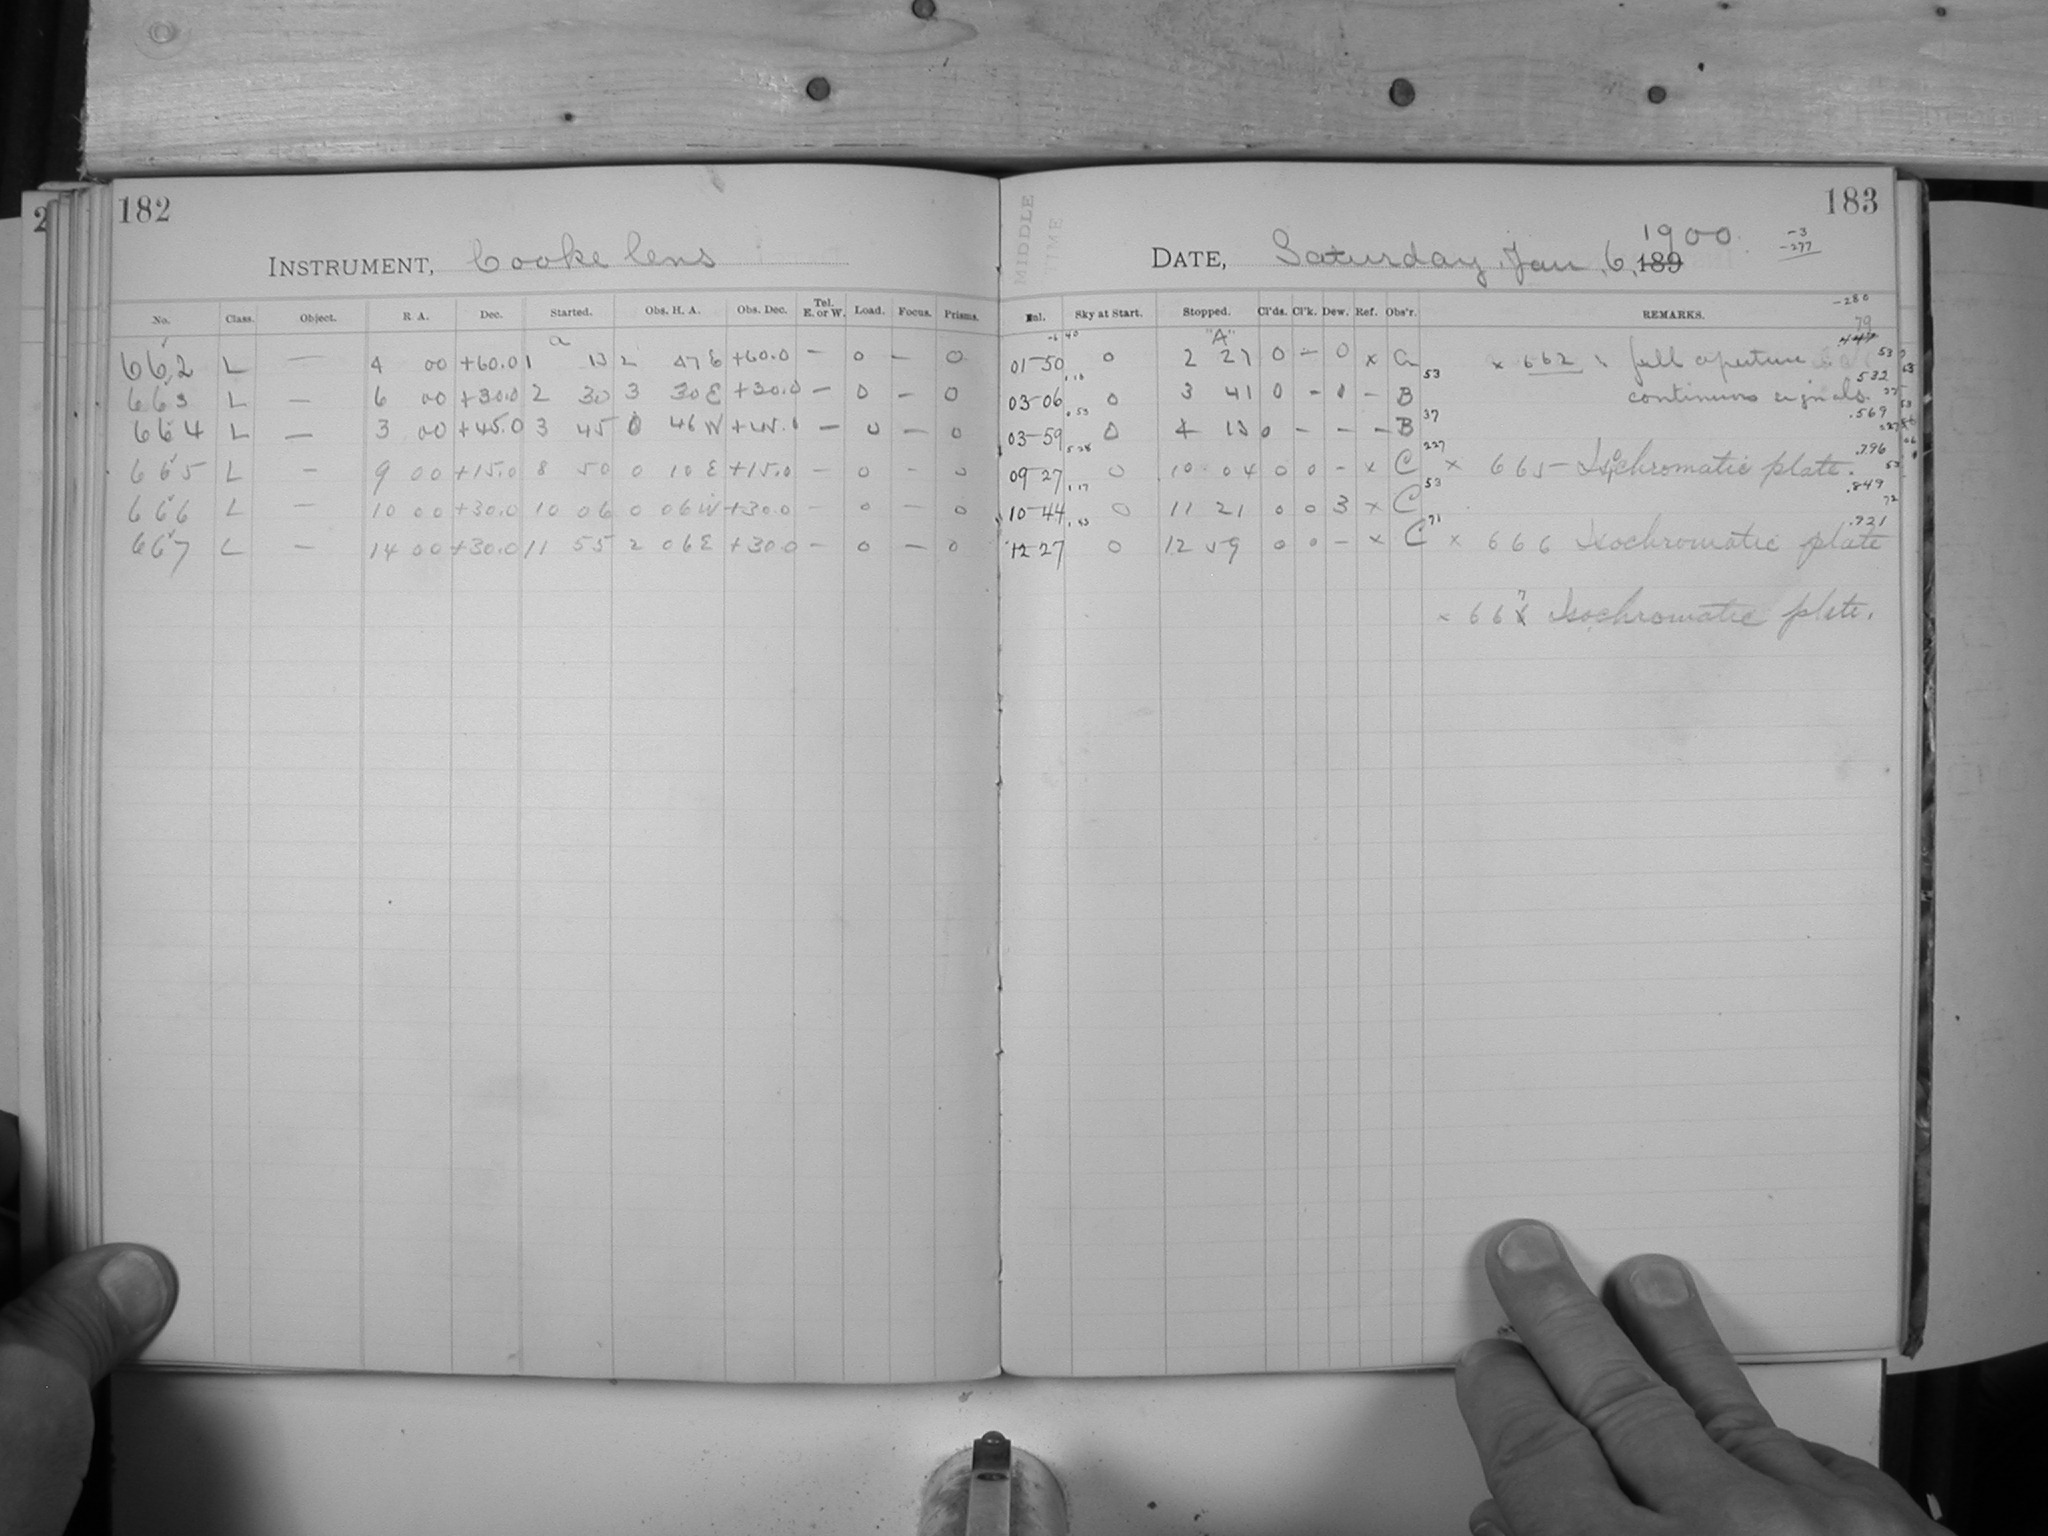 182
INSTRUMENT, Cooke lens
No. Class. Object. R. A. Dec. Started. Obs. H. A. Obs. Dec. Tel. E. or W. Load. Focus. Prisms.
a
662 L — 4 00 +60.0 1 13 2 47 E +60.0 — 0 — 0
663 L — 6 00 +30.0 2 30 3 30 E +30.0 — 0 — 0
664 L — 3 00 +45.0 3 45 0 46 W +45.0 — 0 — 0
665 L — 9 00 +15.0 8 50 0 10 E +15.0 — 0 — 0
666 L — 10 00 +30.0 10 06 0 06 W +30.0 — 0 — 0
667 L — 14 00 +30.0 11 55 2 06 E +30.0 — 0 — 0
183
MIDDLE
TIME
1900
-3
-277
DATE, Saturday, Jan, 6, 189
-280
Sky at Start. Stopped. Cl'ds. Cl'k. Dew. Ref. Obs'r. REMARKS.
79
"A"
01-50 0 2 27 0 — 0 x x 662: full aperture
53 .532
03-06 0 3 41 0 - 0 - B continuous signals.
37 .569
03-59 0 4 13 0 - - - B
227 .796
09-27 0 10 04 0 0 - x C x 665 - Isochromatic plate.
53 .849
10-44 0 11 21 0 0 3 x C
71 72 .921
12-27 0 12 59 0 0 - x C x 666 Isochromatic plate
x 667 Isochromatic plate.